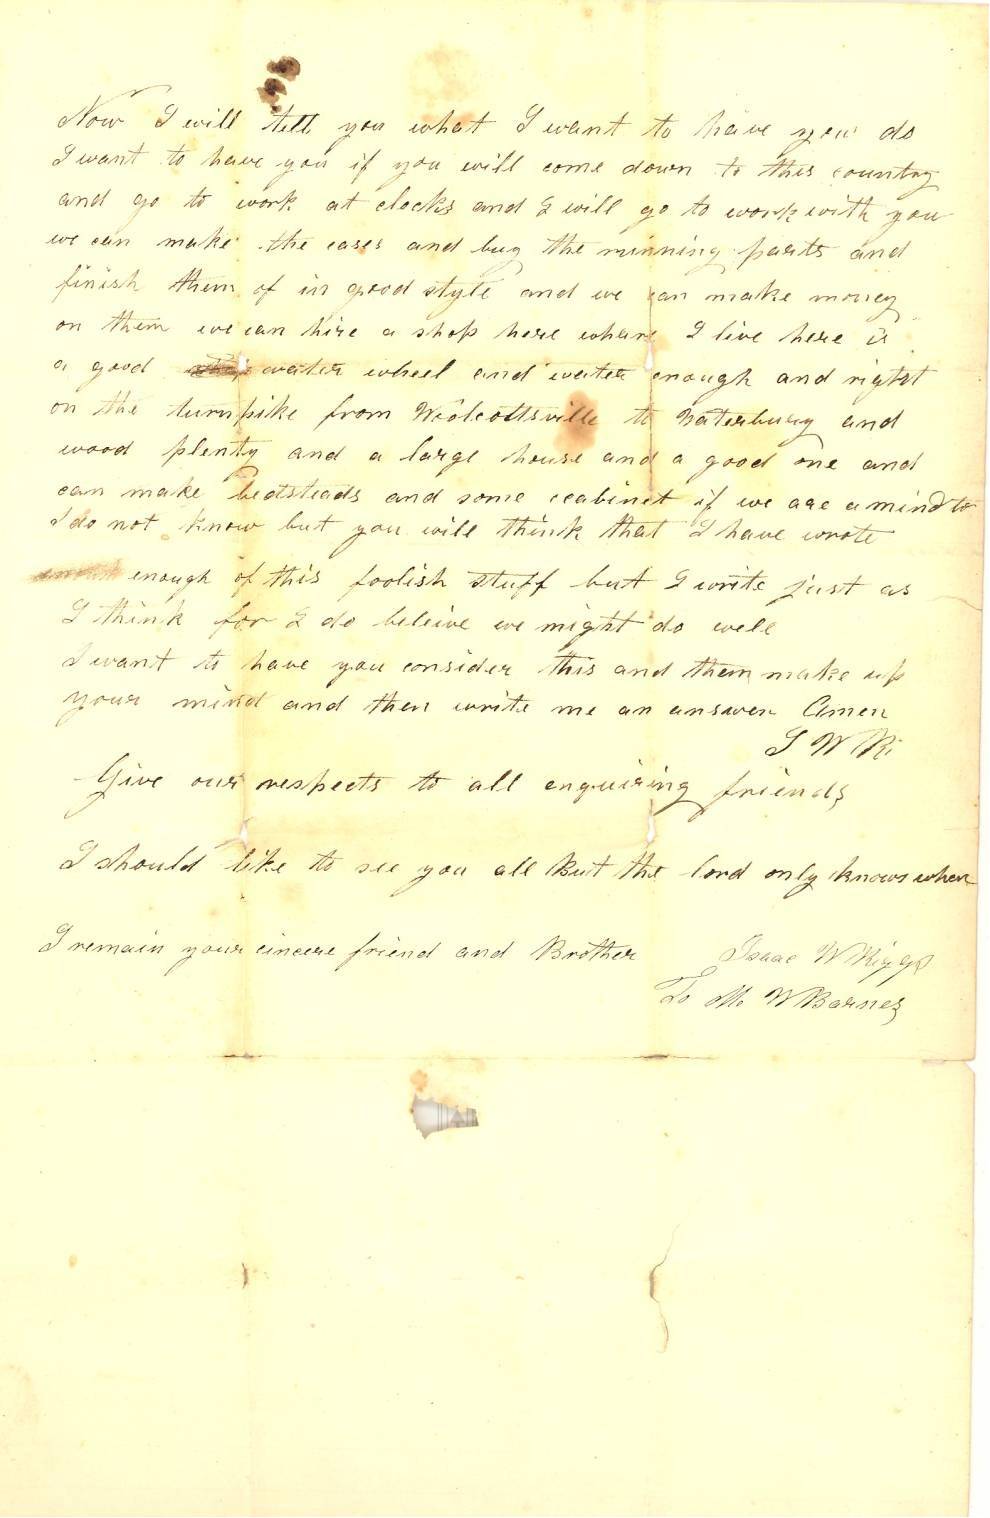 Now I will tell you what I want to have you do
I want to have you if you will come down to this country
and go to work at clocks and I will go to work with you
we can make the cases and buy the running parts and
finish them of in good style and we can make money
on them we can hire a shop here whare I live here is
a good water wheel and water enough and right
on the turnpike from Wolcottsville to Waterbury and
wood plenty and a large house and a good one and
can make bedsteads and some ceabinet if we are a mind to
I do not know but you will think that I have wrote
enough of this foolish stuff but I write just as
I think for I do beleive we might do well
I want to have you consider this and them make up
your mind and then write me an answer Amen
I W Ri
Give our respects to all enquiring friends
I should like to see you all But the lord only knows when
I remain your cincere friend and Brother Isaac W Riggs
To W Barnes